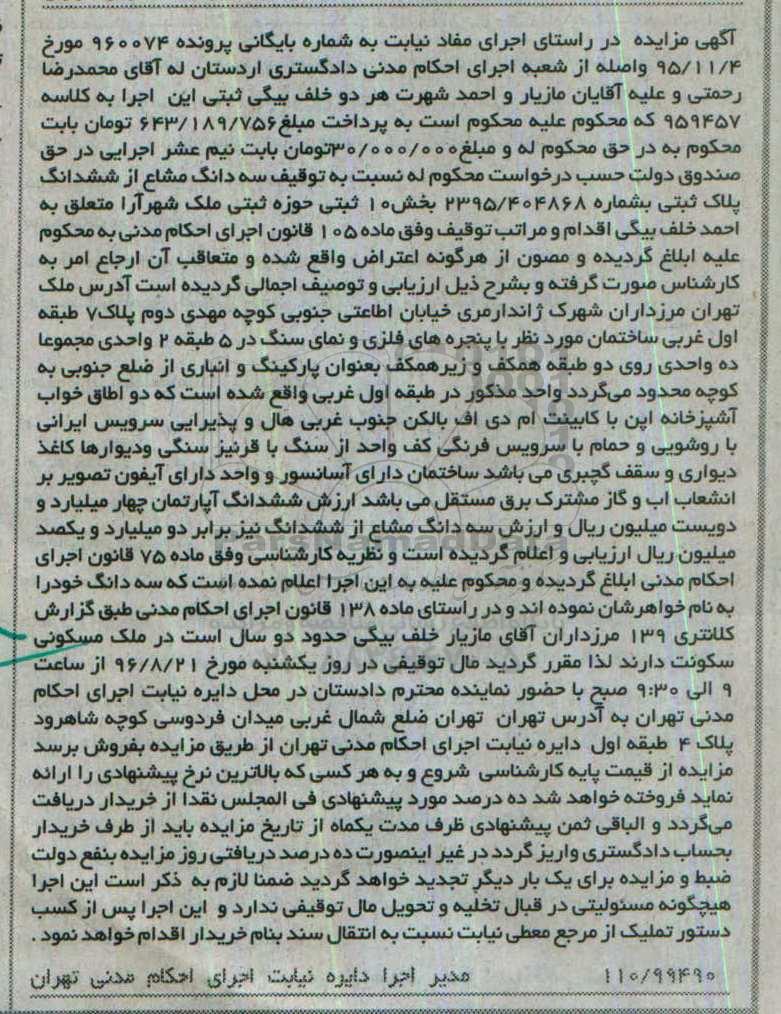 آگهی مزایده در راستای اجرای مفاد نیابت به شماره بایگانی پرونده ۹۶۰۰۷۴ مورخ
۹۵/۱۱/۴ واصله از شعبه اجرای احکام مدنی دادگستری اردستان له آقای محمدرضا
رحمتی و علیه آقایان مازیار و احمد شهرت هر دو خلف بیگی ثبتی این اجرا به کلاسه
۹۵۹۴۵۷ که محکوم علیه محکوم است به پرداخت مبلغ۶۴۳/۱۸۹/۷۵۶ تومان بابت
محکوم به در حق محکوم له و مبلغ۳۰/۰۰۰/۰۰۰تومان بابت نیم عشر اجرایی در حق
صندوق دولت حسب درخواست محکوم له نسبت به توقیف سه دانگ مشاع از ششدانگ
پلاک ثبتی بشماره ۲۳۹۵/۴۰۴۸۶۸ بخش۱۰ ثبتی حوزه ثبتی ملک شهرآرا متعلق به
احمد خلف بیگی اقدام و مراتب توقیف وفق ماده ۱۰۵ قانون اجرای احکام مدنی به محکوم
علیه ابلاغ گردیده و مصون از هرگونه اعتراض واقع شده و متعاقب آن ارجاع امر به
کارشناس صورت گرفته و بشرح ذیل ارزیابی و توصیف اجمالی گردیده است آدرس ملک
تهران مرزداران شهرک ژاندارمری خیابان اطاعتی جنوبی کوچه مهدی دوم پلاک۷ طبقه
اول غربی ساختمان مورد نظر با پنجره های فلزی و نمای سنگ در ۵ طبقه ۲ واحدی مجموعا
ده واحدی روی دو طبقه همکف و زیرهمکف بعنوان پارکینگ و انباری از ضلع جنوبی به
کوچه محدود می‌گردد واحد مذکور در طبقه اول غربی واقع شده است که دو اطاق خواب
آشپزخانه اپن با کابینت ام دی اف بالکن جنوب غربی هال و پذیرایی سرویس ایرانی
با روشویی و حمام با سرویس فرنگی کف واحد از سنگ با قرنیز سنگی ودیوارها کاغذ
دیواری و سقف گچبری می باشد ساختمان دارای آسانسور و واحد دارای آیفون تصویر بر
انشعاب اب و گاز مشترک برق مستقل می باشد ارزش ششدانگ آپارتمان چهار میلیارد و
دویست میلیون ریال و ارزش سه دانگ مشاع از ششدانگ نیز برابر دو میلیارد و یکصد
میلیون ریال ارزیابی و اعلام گردیده است و نظریه کارشناسی وفق ماده ۷۵ قانون اجرای
احکام مدنی ابلاغ گردیده و محکوم علیه به این اجرا اعلام نمده است که سه دانگ خودرا
به نام خواهرشان نموده اند و در راستای ماده ۱۳۸ قانون اجرای احکام مدنی طبق گزارش
کلانتری ۱۳۹ مرزداران آقای مازیار خلف بیگی حدود دو سال است در ملک مسکونی
سکونت دارند لذا مقرر گردید مال توقیفی در روز یکشنبه مورخ ۹۶/۸/۲۱ از ساعت
۹ الی ۹:۳۰ صبح با حضور نماینده محترم دادستان در محل دایره نیابت اجرای احکام
مدنی تهران به آدرس تهران تهران ضلع شمال غربی میدان فردوسی کوچه شاهرود
پلاک ۴ طبقه اول دایره نیابت اجرای احکام مدنی تهران از طریق مزایده بفروش برسد
مزایده از قیمت پایه کارشناسی شروع و به هر کسی که بالاترین نرخ پیشنهادی را ارائه
نماید فروخته خواهد شد ده درصد مورد پیشنهادی فی المجلس نقدا از خریدار دریافت
می‌گردد و الباقی ثمن پیشنهادی ظرف مدت یکماه از تاریخ مزایده باید از طرف خریدار
بحساب دادگستری واریز گردد در غیر اینصورت ده درصد دریافتی روز مزایده بنفع دولت
ضبط و مزایده برای یک بار دیگر تجدید خواهد گردید ضمنا لازم به ذکر است این اجرا
هیچگونه مسئولیتی در قبال تخلیه و تحویل مال توقیفی ندارد و این اجرا پس از کسب
دستور تملیک از مرجع معطی نیابت نسبت به انتقال سند بنام خریدار اقدام خواهد نمود .
۱۱۰/۹۹۴۹۰ مدیر اجرا دایره نیابت اجرای احکام مدنی تهران